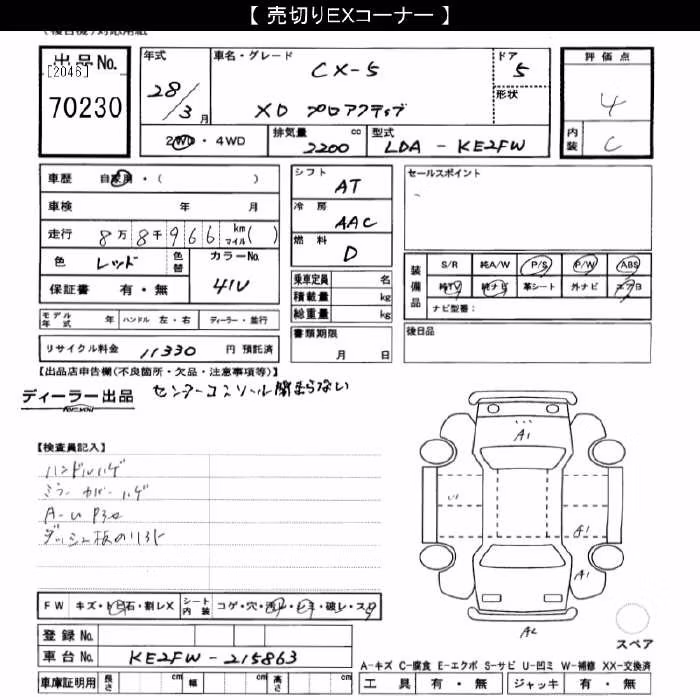 【 売切りEXコーナー 】
出品No.
[2046]
70230
年式
28/3 月
車名・グレード
CX-5
XD プロアクティブ
ドア
5
形状
評価点
4
内装
C
2WD・4WD
排気量
2200 cc
型式
LDA - KE2FW
車歴 自家用・( )
車検 年 月
走行 8万8千966 km マイル( )
色 レッド
色替
カラーNo.
41V
保証書 有・無
シフト
AT
冷房
AAC
燃料
D
乗車定員 名
積載量 kg
総重量 kg
書類期限
月 日
セールスポイント
装備品
S/R 純A/W P/S P/W ABS
純TV 純ナビ 革シート 外ナビ エアB
ナビ型番:
後日品
モデル年式 年 ハンドル 左・右 ディーラー・並行
リサイクル料金 11330 円 預託済
【出品店申告欄(不良箇所・欠品・注意事項等)】
ディーラー出品
センターコンソール閉まらない
【検査員記入】
ハンドルハゲ
ミラーカバーハゲ
A-U P30
A1
A1
A1
A2
スペア
FW キズ・トビ石・割レX シート内装 コゲ・穴・汚レ・シミ・破レ・スレ
登録No.
車台No. KE2FW-215863
車庫証明用 長さ cm 幅 cm 高さ cm
A-キズ C-腐食 E-エクボ S-サビ U-凹ミ W-補修 XX-交換済
工具 有・無 ジャッキ 有・無